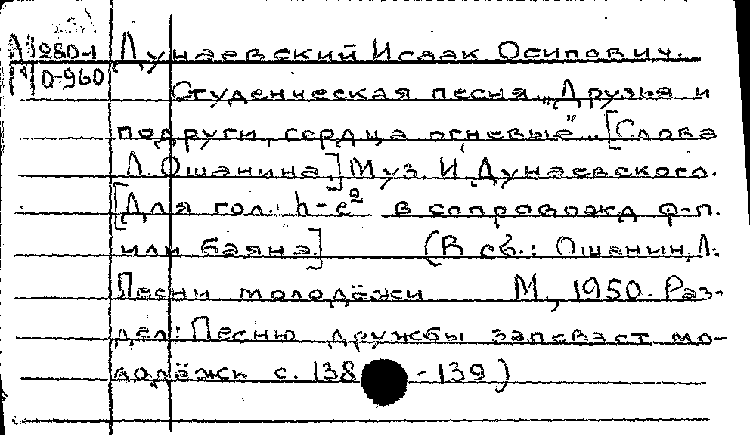 М 280-1 Дунаевский Исаак Осипович.
О-960
Студенческая песня „Друзья и
подруги, сердца огневые"... [Слова
Л. Ошанина.] Муз. И. Дунаевского.
[Для гол.: h-e² в сопровожд ф-п.
или баяна.] (В сб.: Ошанин, Л.
Песни молодёжи М., 1950. Раз-
дел: Песню дружбы запевает мо-
лодёжь с. 138 -139)